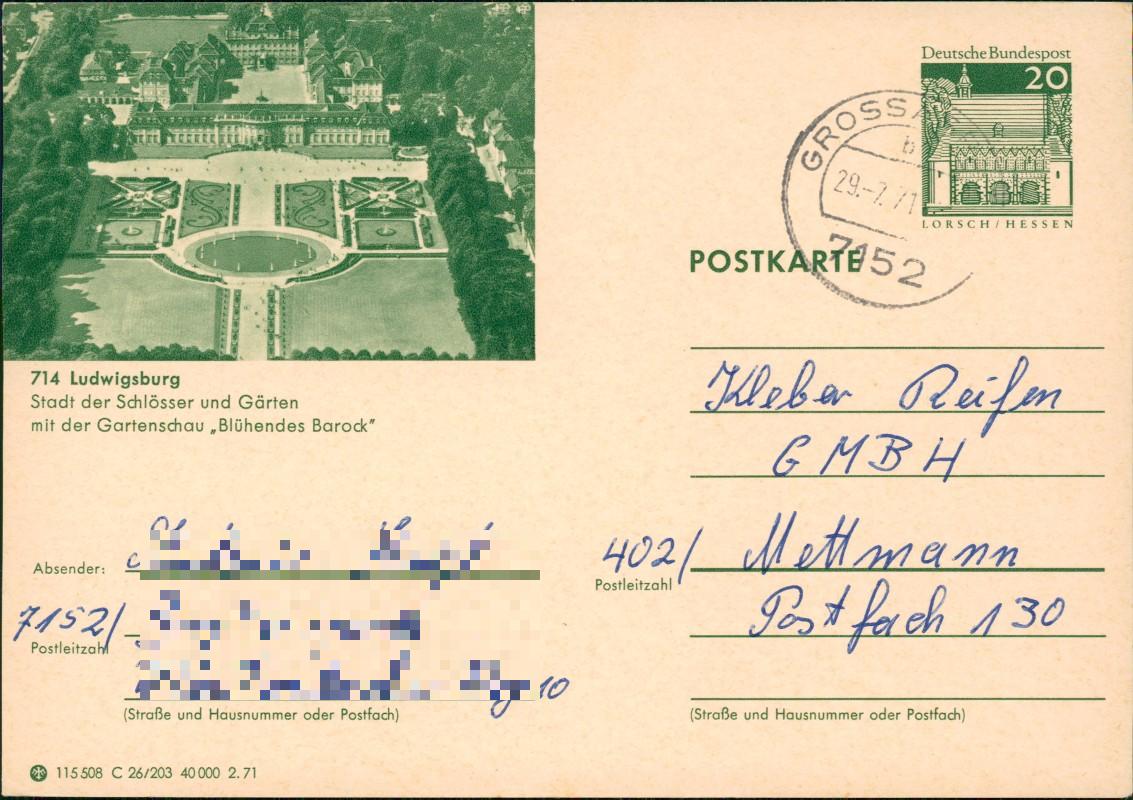 Deutsche Bundespost
20
LORSCH / HESSEN
b
29.-7.71
7152
POSTKARTE
714 Ludwigsburg
Stadt der Schlösser und Gärten
mit der Gartenschau „Blühendes Barock"
Kleber Reifen
GMBH
402/ Mettmann
Postleitzahl
Postfach 130
(Straße und Hausnummer oder Postfach)
Absender:
7152/
Postleitzahl
10
(Straße und Hausnummer oder Postfach)
115508 C 26/203 40000 2.71